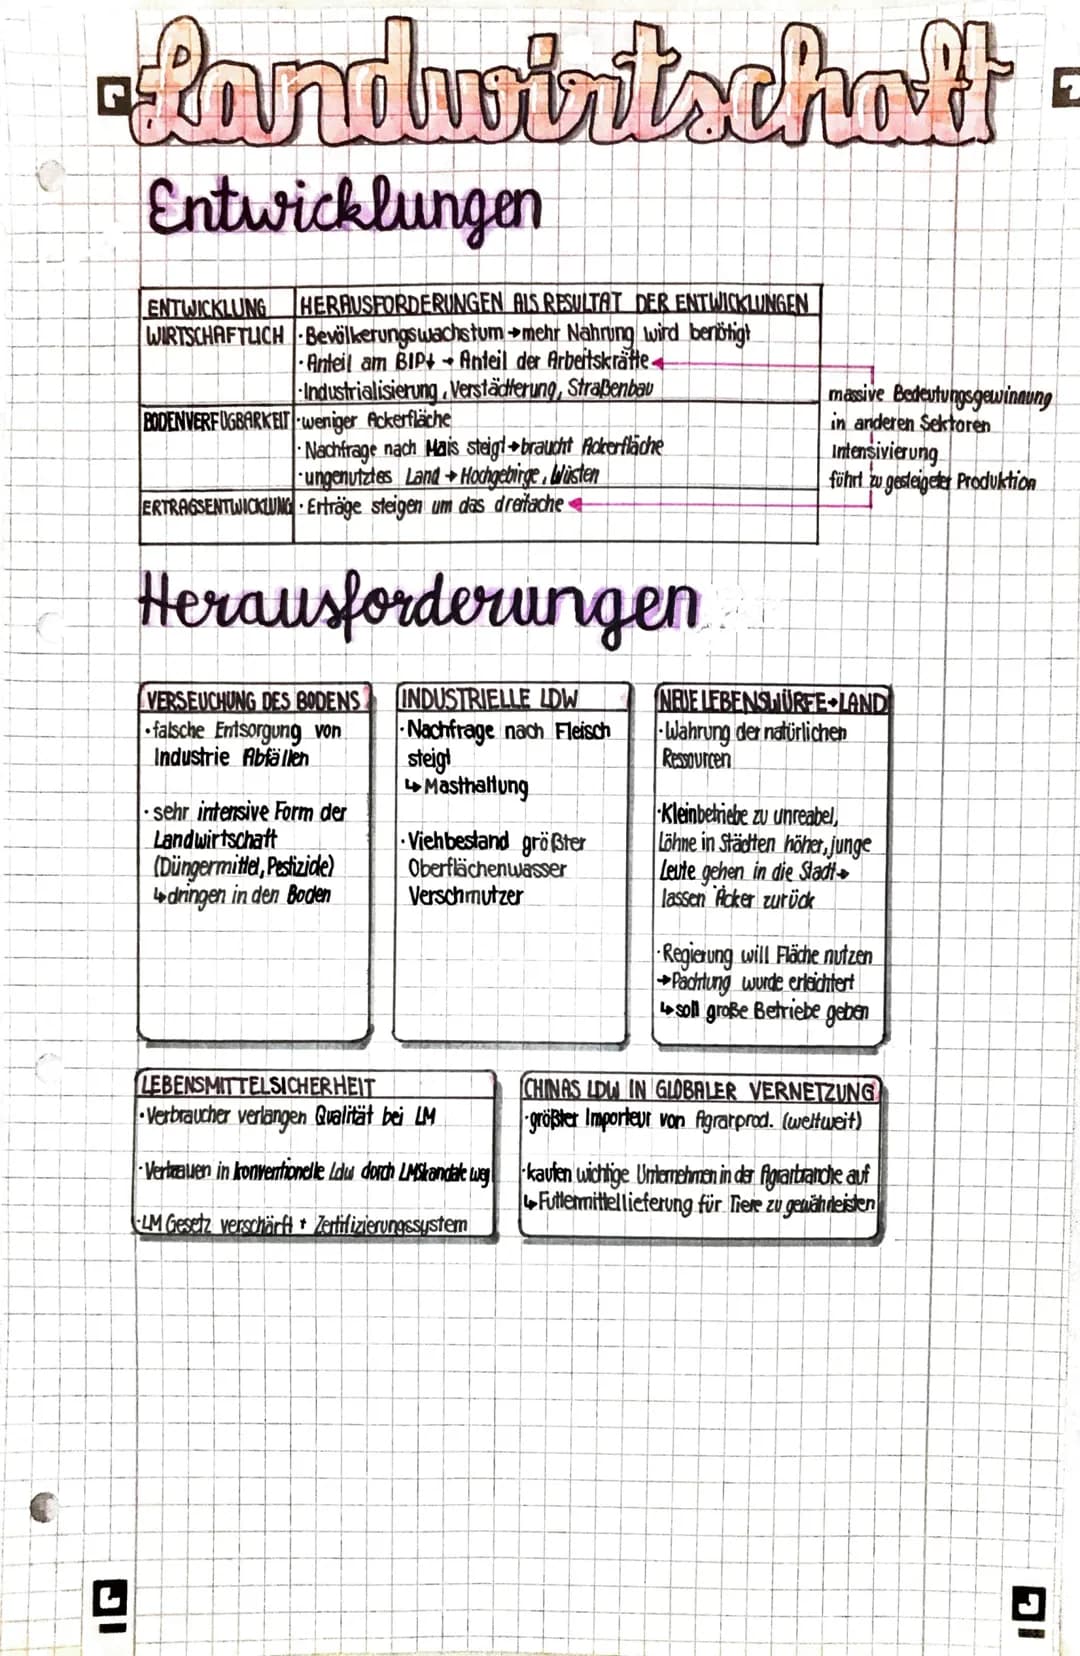 Landwirtschaft
Entwicklungen
ENTWICKLUNG HERAUSFORDERUNGEN ALS RESULTAT DER ENTWICKLUNGEN
WIRTSCHAFTLICH · Bevölkerungswachstum → mehr Nahrung wird benötigt
· Anteil am BIP↓ → Anteil der Arbeitskräfte
· Industrialisierung, Verstädterung, Straßenbau
BODENVERFÜGBARKEIT · weniger Ackerfläche
· Nachfrage nach Mais steigt → braucht Ackerfläche
· ungenutztes Land → Hochgebirge, Wüsten
ERTRAGSENTWICKLUNG · Erträge steigen um das dreifache
massive Bedeutungsgewinnung
in anderen Sektoren
Intensivierung
führt zu gesteigeter Produktion
Herausforderungen
VERSEUCHUNG DES BODENS
· falsche Entsorgung von
Industrie Abfällen
· sehr intensive Form der
Landwirtschaft
(Düngermittel, Pestizide)
↳ dringen in den Boden
INDUSTRIELLE LDW
· Nachfrage nach Fleisch
steigt
↳ Masthaltung
· Viehbestand größter
Oberflächenwasser
Verschmutzer
NEUE LEBENSWÜRFE → LAND
· Wahrung der natürlichen
Ressourcen
· Kleinbetriebe zu unreabel,
Löhne in Städten höher, junge
Leute gehen in die Stadt →
lassen Äcker zurück
· Regierung will Fläche nutzen
→ Pachtung wurde erleichtert
↳ soll große Betriebe geben
LEBENSMITTELSICHERHEIT
· Verbraucher verlangen Qualität bei LM
· Vertrauen in konventionelle Ldw durch LMSkandale weg
· LM Gesetz verschärft + Zertifizierungssystem
CHINAS LDW IN GLOBALER VERNETZUNG
· größter Importeur von Agrarprod. (weltweit)
· kaufen wichtige Unternehmen in der Agrarbranche auf
↳ Futtermittellieferung für Tiere zu gewährleisten